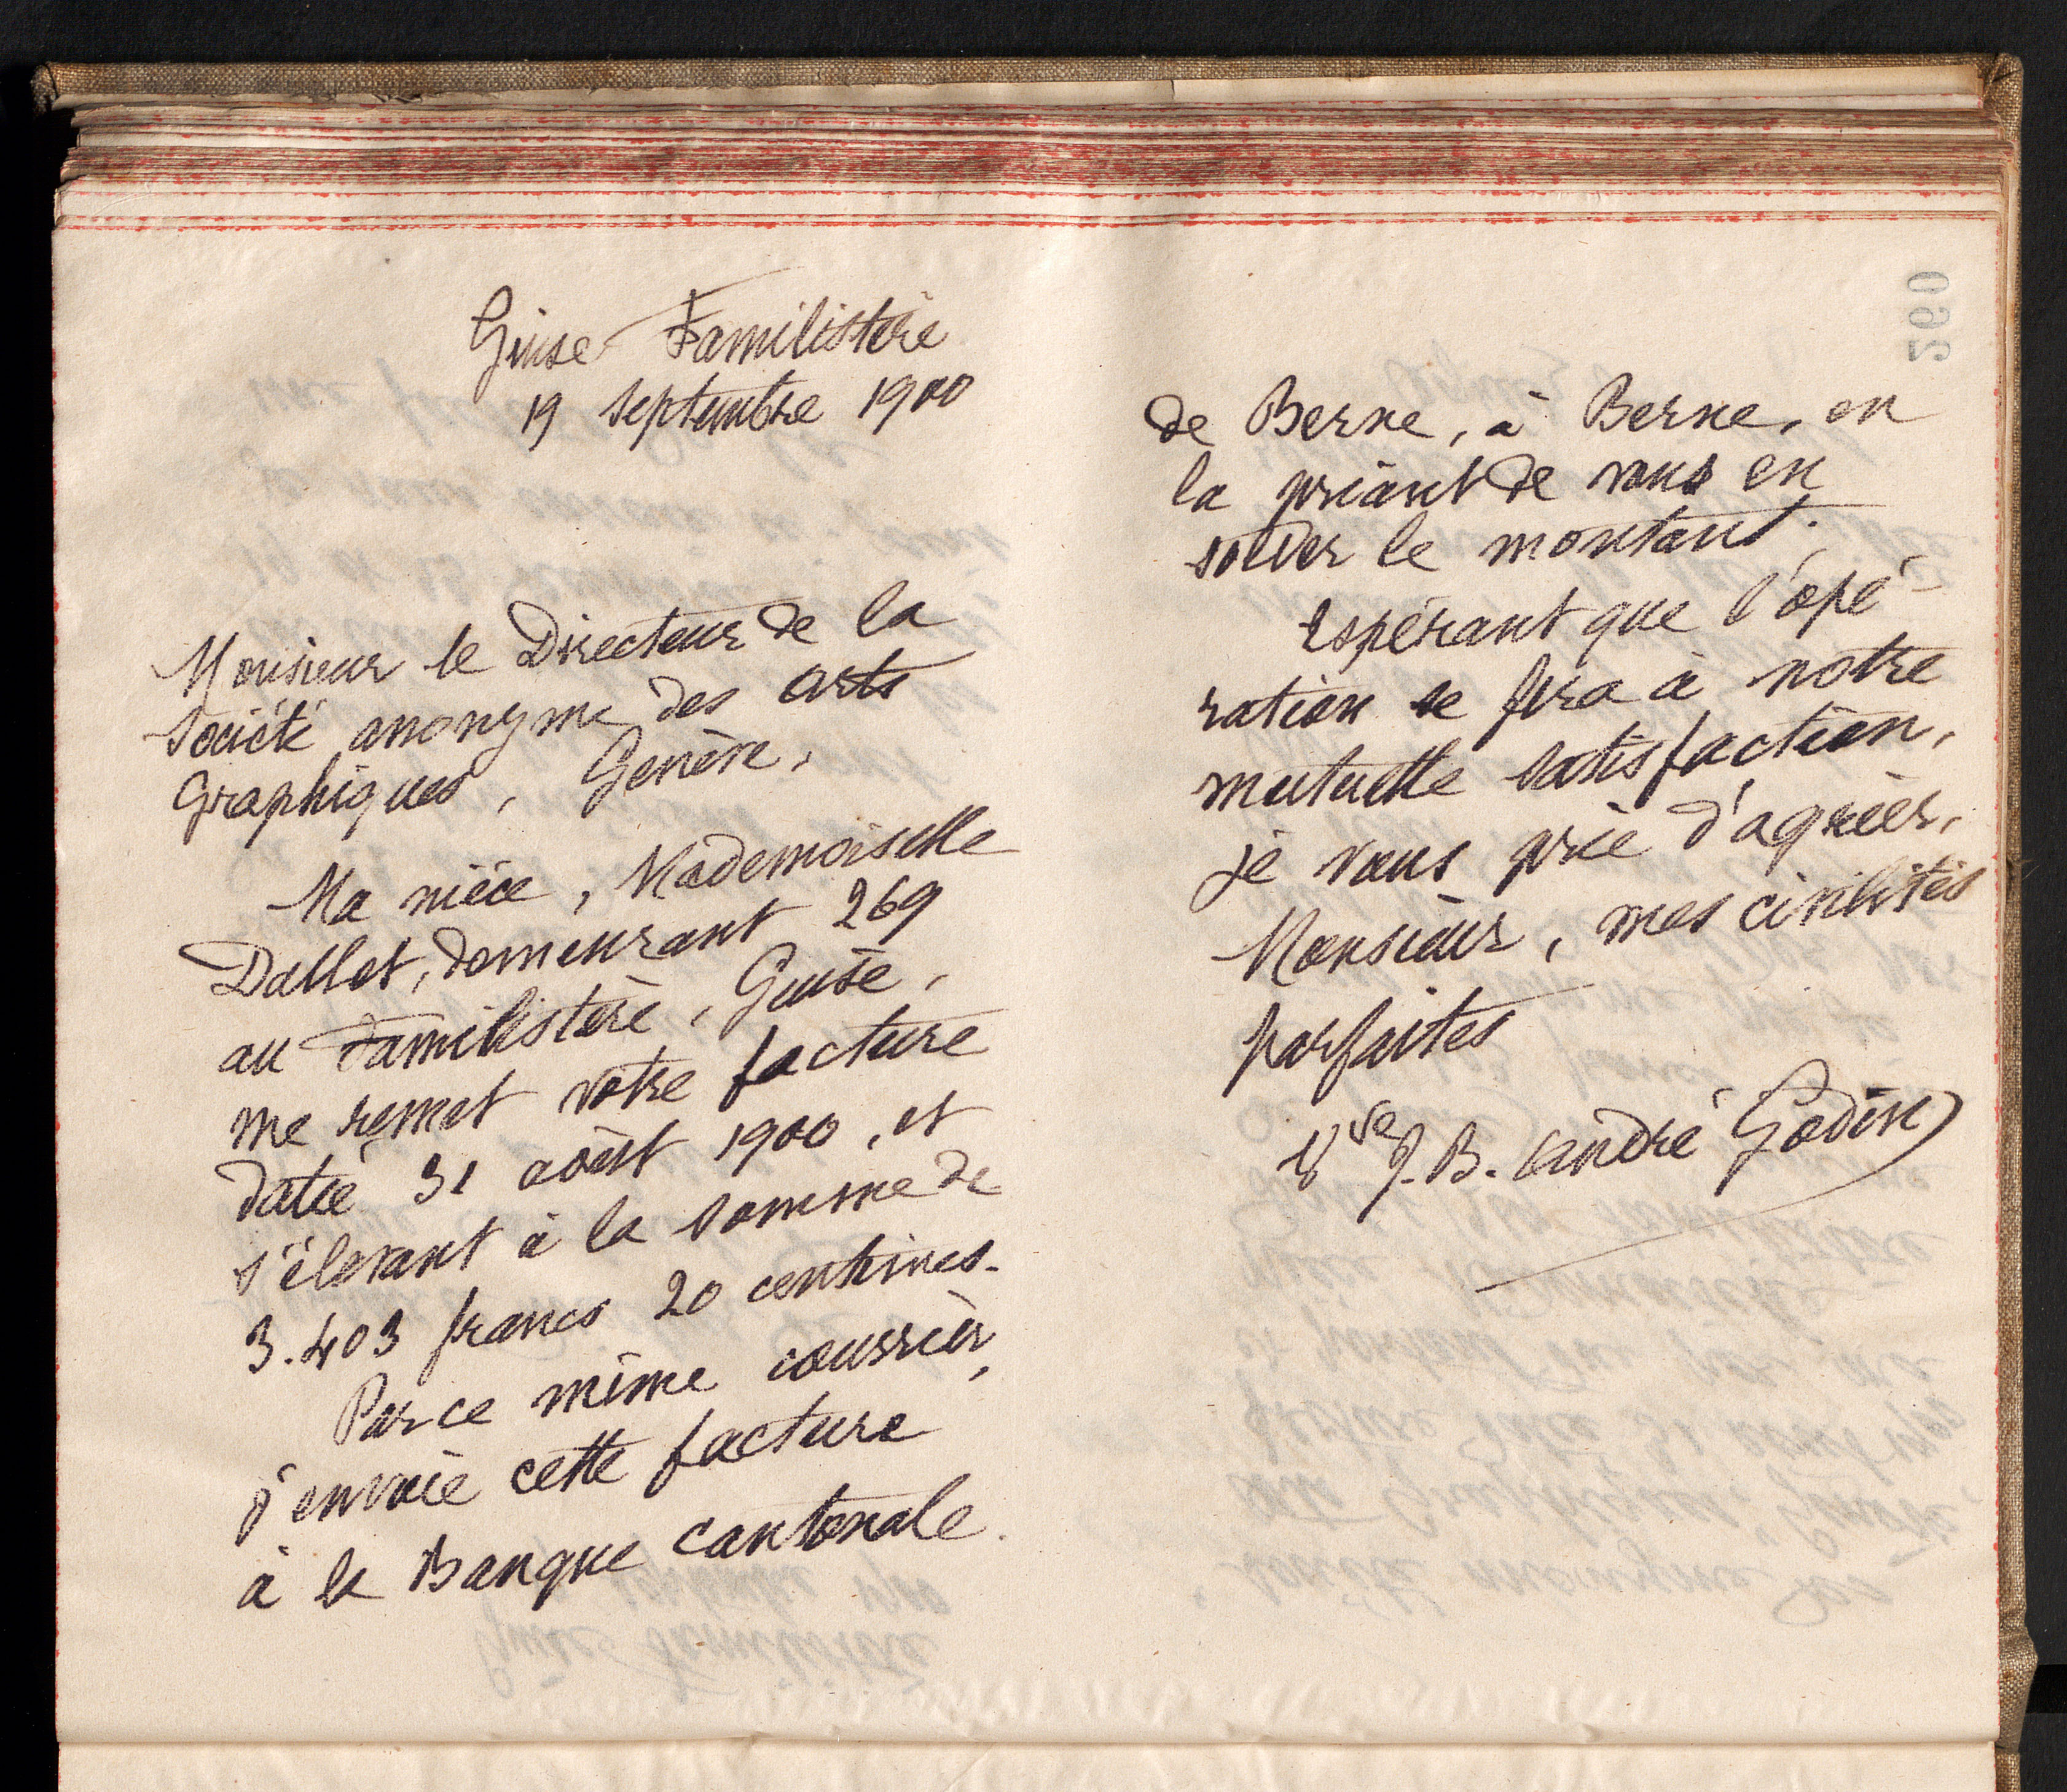 Guise Familistère
19 septembre 1900
Monsieur le Directeur de la
Société anonyme des arts
Graphiques, Genève,
Ma nièce, Mademoiselle
Dallet, demeurant 269
au Familistère, Guise,
me remet votre facture
datée 31 août 1900, et
s'élevant à la somme de
3.403 francs 20 centimes.
Par ce même courrier,
j'envoie cette facture
à la Banque cantonale
de Berne, à Berne, en
la priant de vous en
solder le montant.
Espérant que l'opé-
ration se fera à notre
mutuelle satisfaction,
je vous prie d'agréer,
Monsieur, mes civilités
parfaites
Vve J. B. André Godin
260